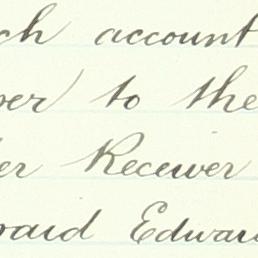 ch account
per to the
er Receiver
said Edwar